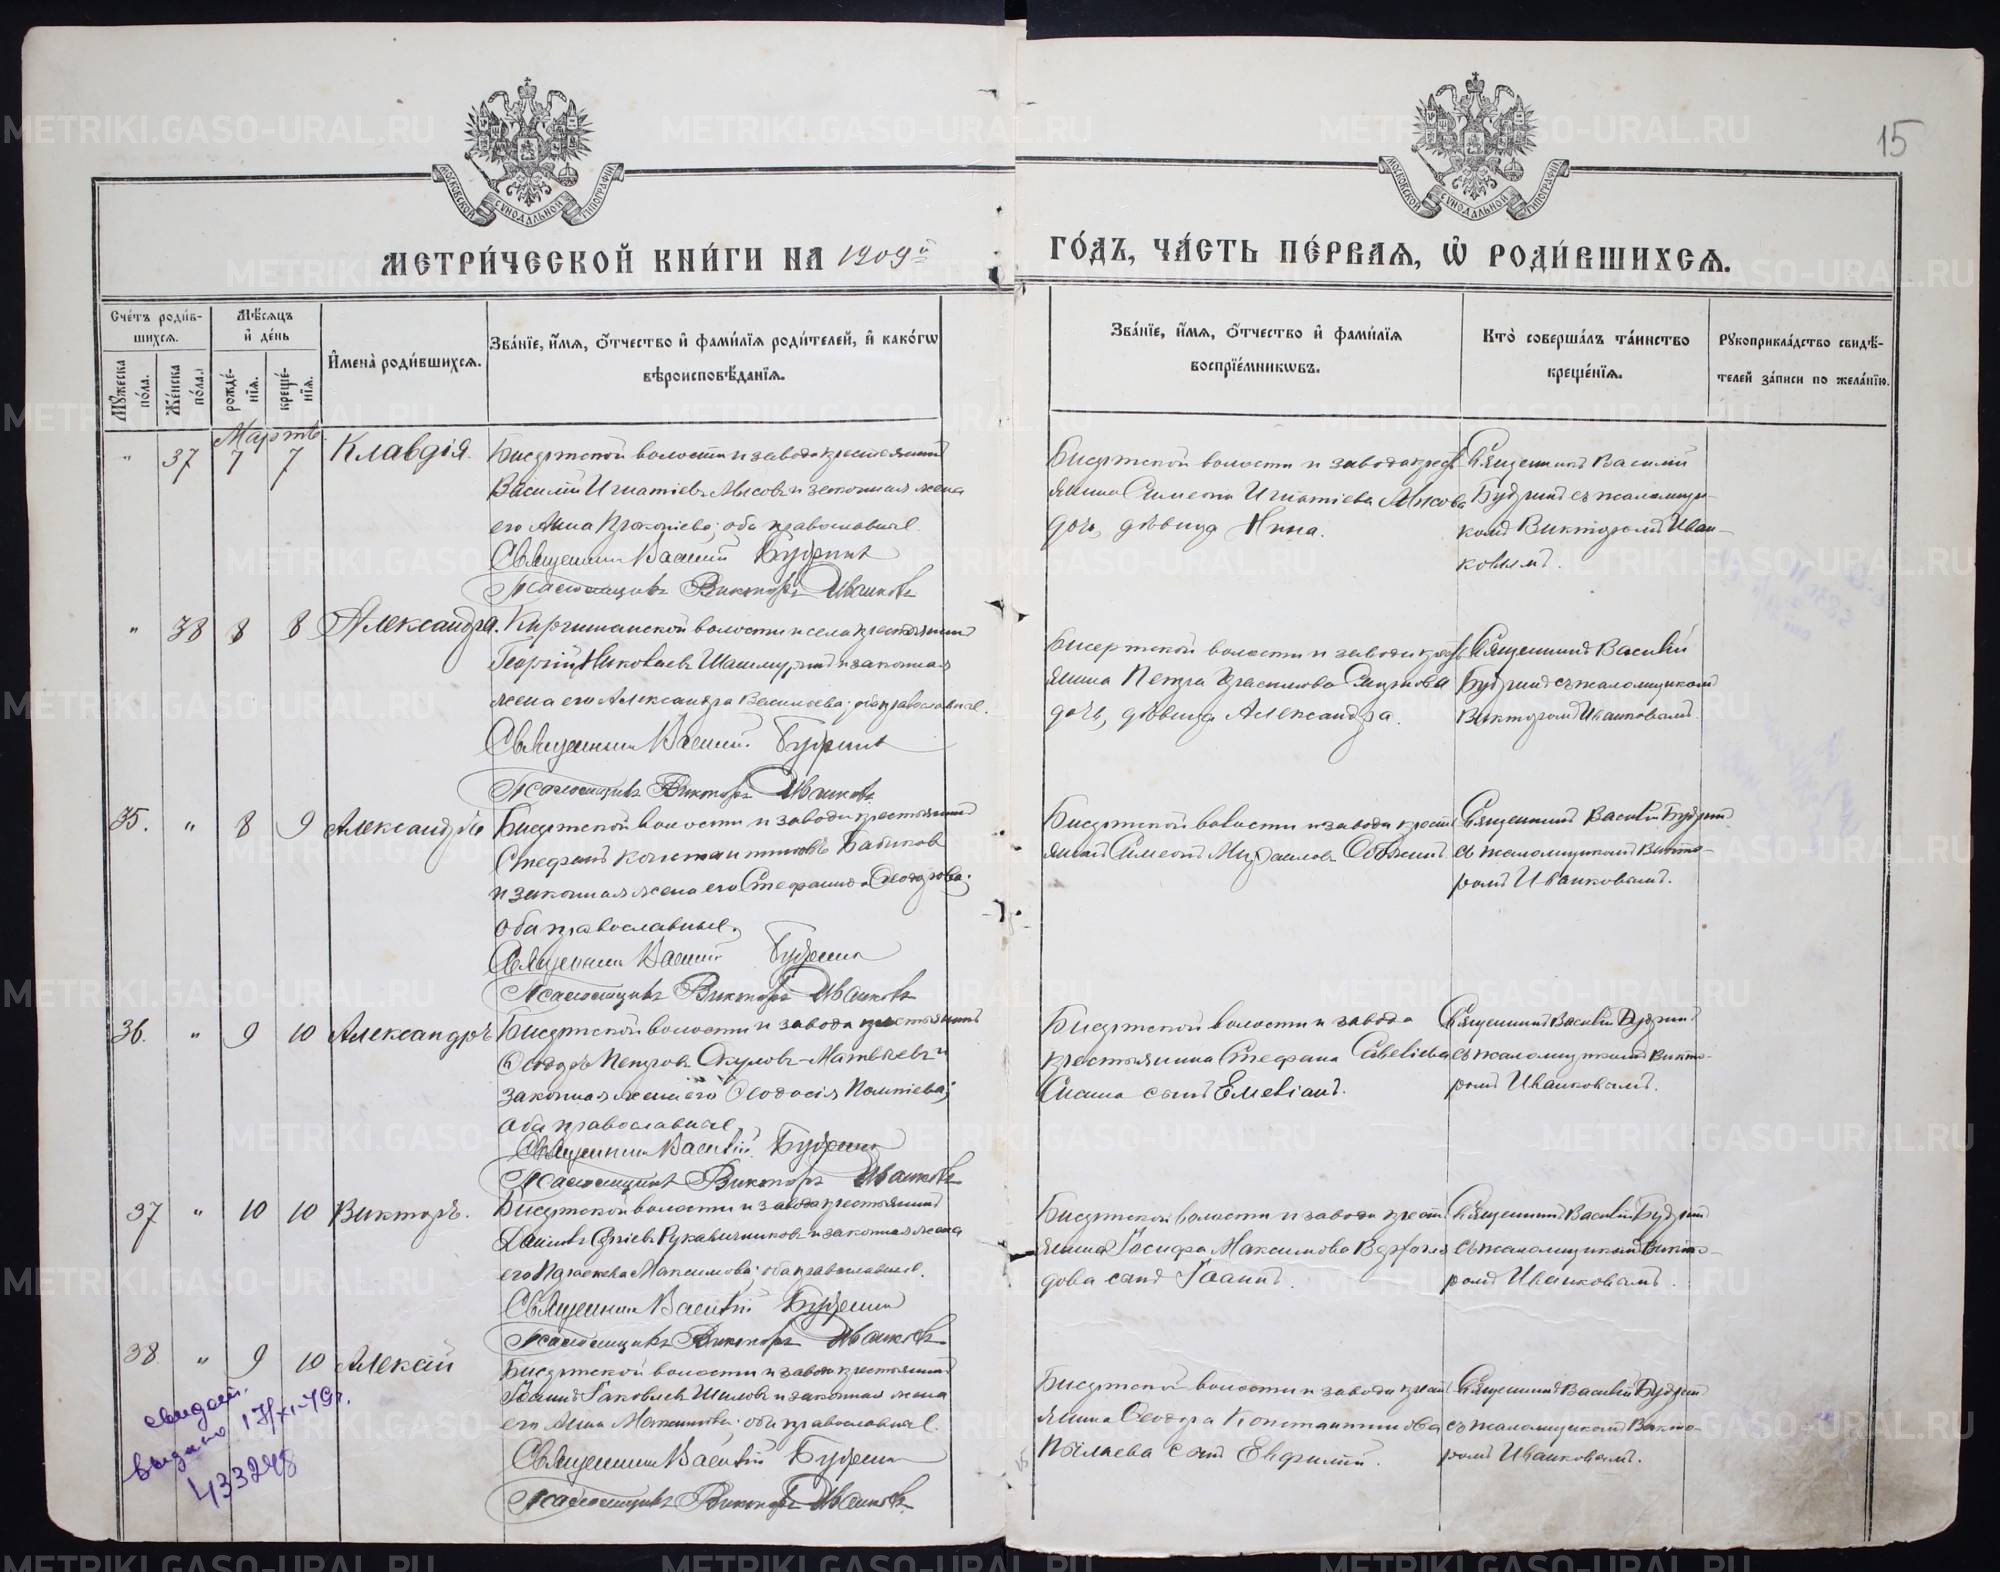 15
МОСКОВСКОЙ СѴНОДАЛЬНОЙ ТИПОГРАФІИ
МОСКОВСКОЙ СѴНОДАЛЬНОЙ ТИПОГРАФІИ
МЕТРИ́ЧЕСКОЙ КНИ́ГИ НА 1909й
ГО́ДЪ, ЧА́СТЬ ПЕ́РВАЯ, Ѡ҆ РОДИ́ВШИХСЯ.
Сче́тъ роди́в-
шихся.
Мꙋ́жеска по́ла.
Же́нска по́ла.
Мѣ́сяцъ
и҆ де́нь
рожде́-
нїя.
креще́-
нїя.
И҆мена̀ роди́вшихся.
Зва́нїе, и҆́мя, ѻ҆́тчество и҆ фами́лїя роди́телей, и҆ како́гѡ
вѣроисповѣ́данїя.
Зва́нїе, и҆́мя, ѻ҆́тчество и҆ фами́лїя
воспрїе́мникѡвъ.
Кто̀ соверша́лъ та́инство
креще́нїя.
Рꙋкоприкла́дство свидѣ́-
телей за́писи по жела́нїю.
Мартъ.
" 37 7 7 Клавдія.
Бисертской волости и завода крестьянинъ
Василій Игнатіевъ Мысовъ и законная жена
его Анна Прокопіева; оба православные.
Священникъ Василій Будринъ
Псаломщикъ Викторъ Иванковъ
Бисертской волости и завода кресть
янина Симеона Игнатіева Мысова
дочь, дѣвица Нина.
Священникъ Василій
Будринъ съ псаломщи-
комъ Викторомъ Иван-
ковымъ.
" 38 8 8 Александра.
Киргишанской волости и села крестьянинъ
Георгій Николаевъ и законная
жена его Александра Васильева; оба православные.
Священникъ Василій Будринъ
Псаломщикъ Викторъ Иванковъ
Бисертской волости и завода кресть
янина Петра Смирнова
дочь, дѣвица Александра.
Священникъ Василій
Будринъ съ псаломщикомъ
Викторомъ Иванковымъ.
35. " 8 9 Александръ
Бисертской волости и завода крестьянинъ
Стефанъ Константиновъ Бабиковъ
и законная жена его Стефанида Ѳеодорова;
оба православные.
Священникъ Василій Будринъ
Псаломщикъ Викторъ Иванковъ
Бисертской волости и завода кресть
янинъ Симеонъ Михаиловъ
Священникъ Василій Будринъ
съ псаломщикомъ Викто-
ромъ Иванковымъ.
36. " 9 10 Александръ
Бисертской волости и завода крестьянинъ
Ѳеодоръ Петровъ Окуловъ-Матвѣевъ и
законная жена его Ѳеодосія
оба православные.
Священникъ Василій Будринъ
Псаломщикъ Викторъ Иванковъ
Бисертской волости и завода
крестьянина Стефана Савеліева
сынъ Емеліанъ.
Священникъ Василій Будринъ
съ псаломщикомъ Викто-
ромъ Иванковымъ.
37 " 10 10 Викторъ.
Бисертской волости и завода крестьянинъ
Рукавичниковъ и законная жена
его Максимова; оба православные.
Священникъ Василій Будринъ
Псаломщикъ Викторъ Иванковъ
Бисертской волости и завода кресть
янина Іосифа Максимова
сынъ Іоаннъ.
Священникъ Василій Будринъ
съ псаломщикомъ Викто-
ромъ Иванковымъ.
38. " 9 10 Алексій
Бисертской волости и завода крестьянинъ
Іоаннъ Іаковлевъ Шиловъ и законная жена
его Анна; оба православные.
Священникъ Василій Будринъ
Псаломщикъ Викторъ Иванковъ
Бисертской волости и завода кресть
янина Ѳеодора Константинова
Пылаева сынъ Евфимій.
Священникъ Василій Будринъ
съ псаломщикомъ Викто-
ромъ Иванковымъ.
свидет.
выдано 17/XI-49г.
433248
METRIKI.GASO-URAL.RU